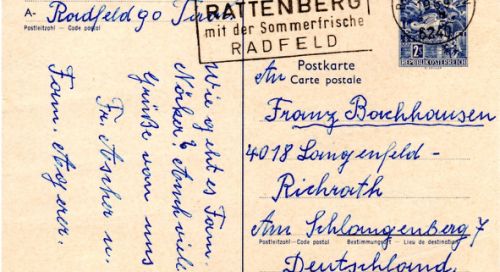 A- Radfeld 90 Tirol
Postleitzahl - Code postal
RATTENBERG
mit der Sommerfrische
RADFELD
6240
2
REPUBLIK ÖSTERREICH
Postkarte
Carte postale
An
Franz Bachhausen
4018 Langenfeld-
Richrath
Am Schlangenberg 7
Postleitzahl - Code postal Bestimmungsort - Lieu de destination
Deutschland
Wie geht es Fam.
Nörker? Auch viele
Grüße von uns
Fr. Ascher u.
Fam. Agerer.